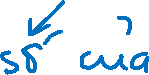 số của